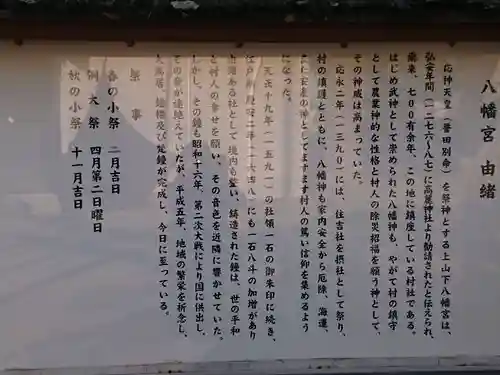 八幡宮 由緒
応神天皇(誉田別命)を祭神とする上山下八幡宮は、
弘安年間(一二七六〜八七)に高麗神社より勧請されたと伝えられ、
爾来、七〇〇有余年、この地に鎮座している村社である。
はじめ武神として崇められた八幡神も、やがて村の鎮守
として農業神的な性格と村人の除災招福を願う神として、
その神威は高まっていった。
応永二年(一三九〇)には、住吉社を摂社として祭り、
村の鎮護とともに、八幡神も家内安全から厄除、海運、
さらに安産の神としてますます村人の篤い信仰を集めるよう
になった。
天正十九年(一五九一)の社領一石の御朱印に続き、
江戸期の慶安二年(一六四八)にも一石八斗の加増があり
由緒ある社として境内も整い、鋳造された鐘は、世の平和
と村人の幸せを願い、その音色を近隣に響かせていた。
しかし、その鐘も昭和十六年、第二次大戦により国に供出し、
その音が途絶えていたが、平成五年、地域の繁栄を祈念し、
大鳥居、鐘楼及び梵鐘が完成し、今日に至っている。
祭事
春の小祭 二月吉日
例大祭 四月第二日曜日
秋の小祭 十一月吉日